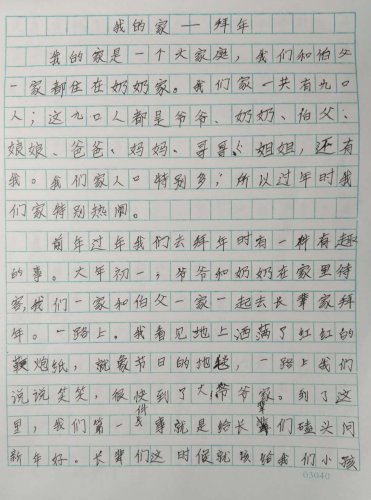 我的家 — 拜年
我的家是一个大家庭，我们和伯父
一家都住在奶奶家。我们家一共有九口
人；这九口人都是爷爷、奶奶、伯父、
娘娘、爸爸、妈妈、哥哥、姐姐，还有
我。我们家人口特别多；所以过年时我
们家特别热闹。
前年过年我们去拜年时有一种有趣
的事。大年初一，爷爷和奶奶在家里待
客，我们一家和伯父一家一起去长辈家拜
年。一路上。我看见地上洒满了红红的
鞭炮纸，就象节日的地毯，一路上我们
说说笑笑，很快到了大爷爷家。到了这
里，我们第一件事就是给长辈们磕头问
新年好。长辈们这时侯就该给我们小孩
03040